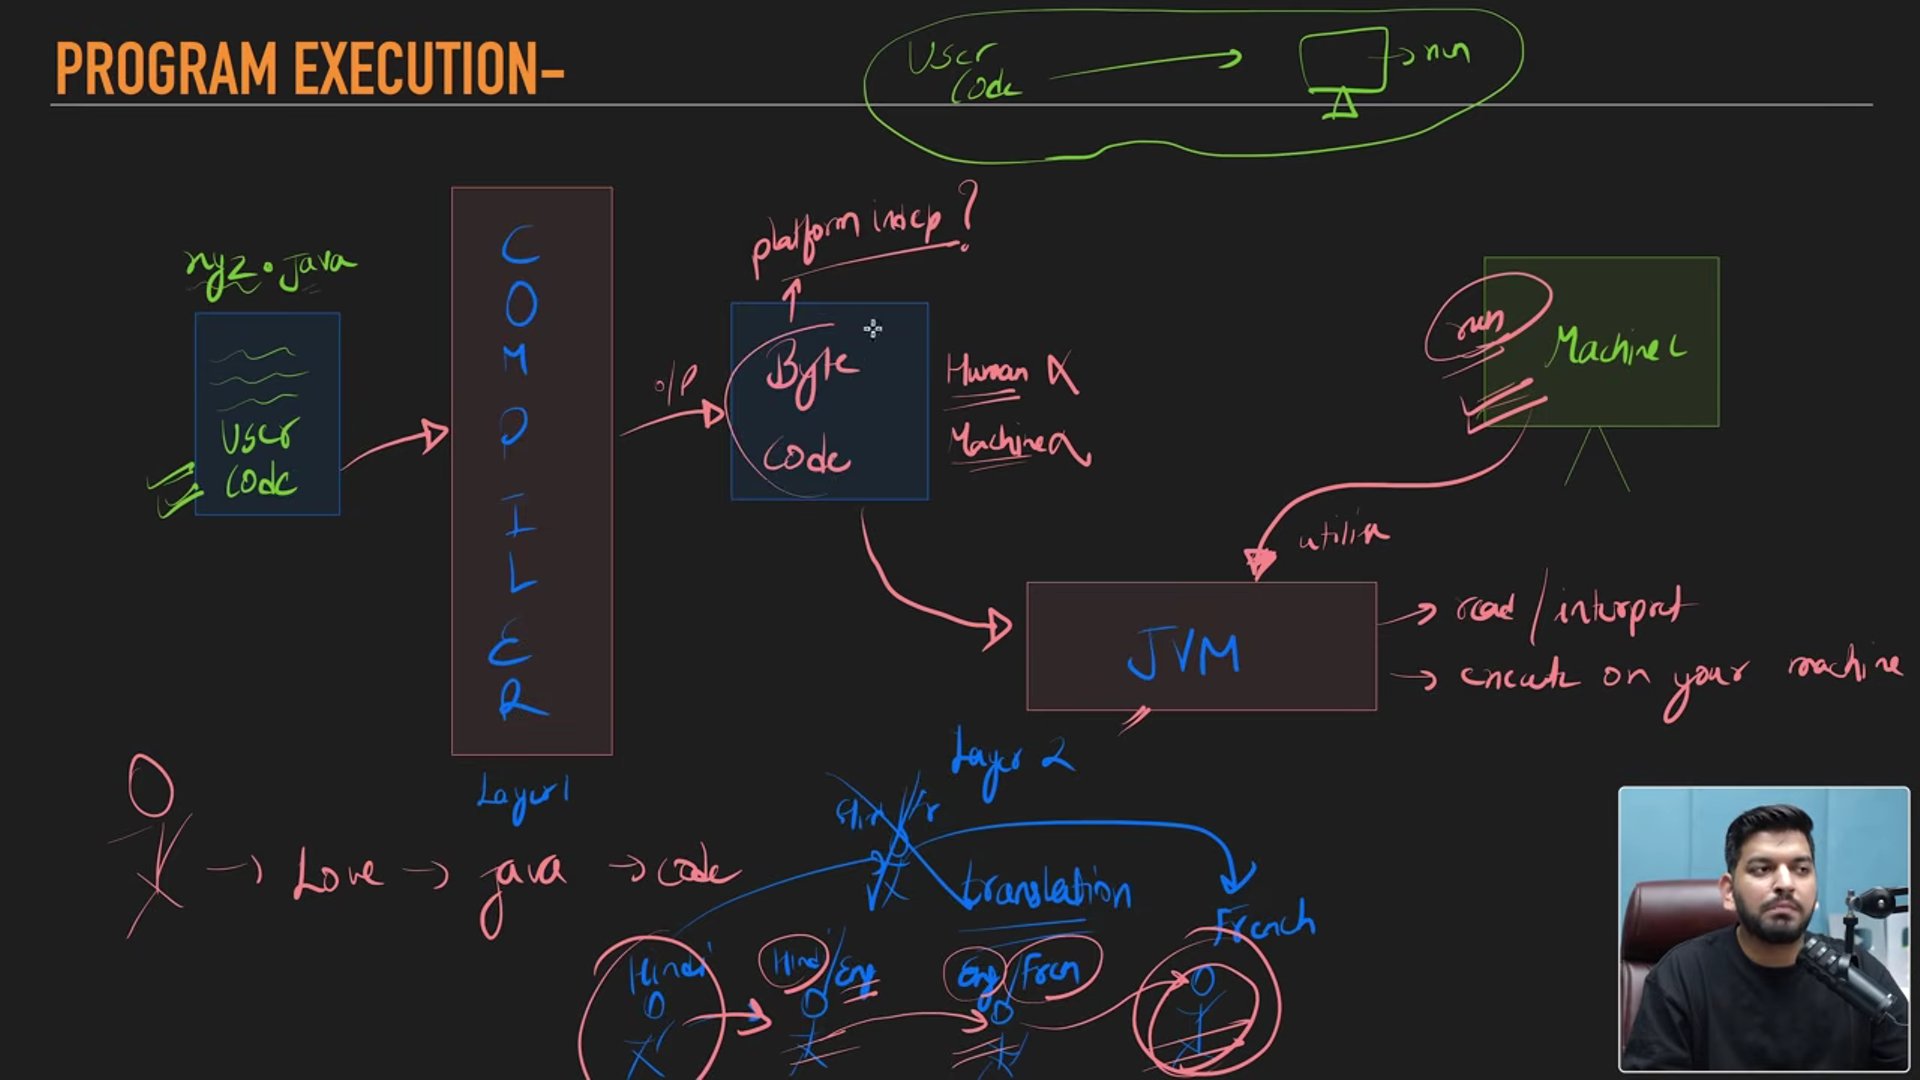 PROGRAM EXECUTION-
User
Code
run
platform indep?
xyz.java
User
Code
COMPILER
O/P
Byte
Code
Human X
Machine
run
Machine
JVM
read / interpret
execute on your machine
Layer 1
Layer 2
Love
java
code
translation
French
Hindi
Hindi/Eng
Eng/Fren